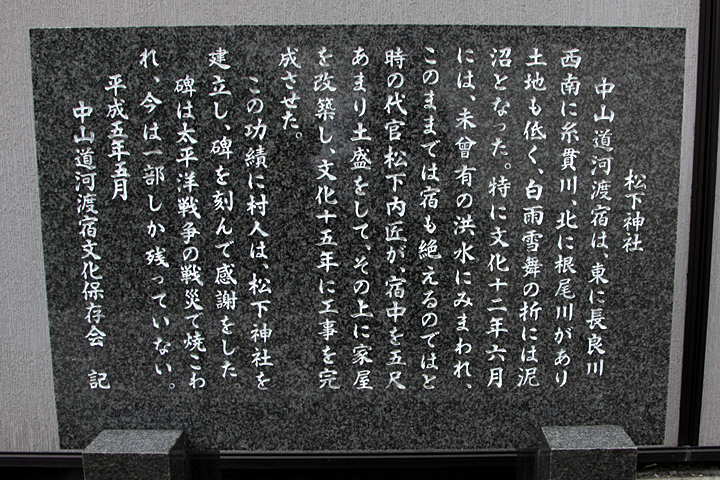 松下神社
中山道河渡宿は、東に長良川
西南に糸貫川、北に根尾川があり
土地も低く、白雨雪舞の折には泥
沼となった。特に文化十二年六月
には、未曾有の洪水にみまわれ、
このままでは宿も絶えるのではと
時の代官松下内匠が、宿中を五尺
あまり土盛をして、その上に家屋
を改築し、文化十五年に工事を完
成させた。
この功績に村人は、松下神社を
建立し、碑を刻んで感謝をした
碑は太平洋戦争の戦災で焼こわ
れ、今は一部しか残っていない。
平成五年五月
中山道河渡宿文化保存会 記